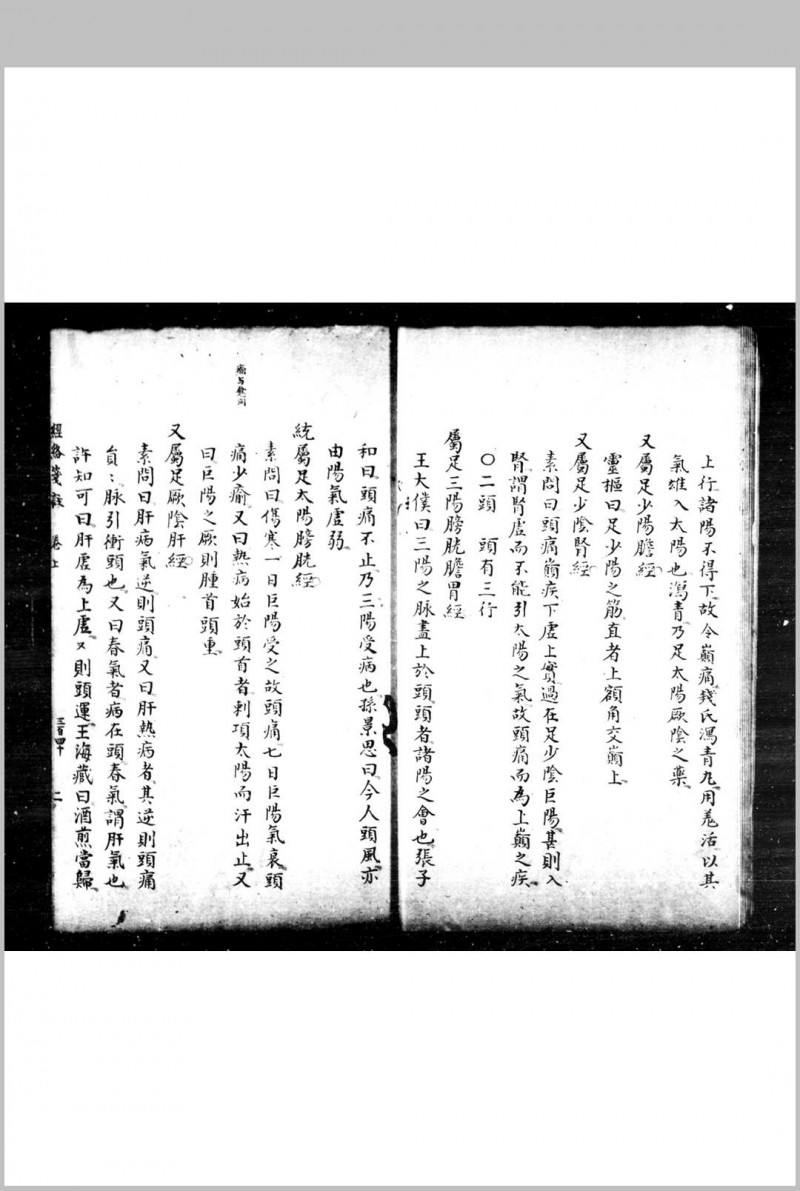 上行諸陽不得下故令巔痛錢氏瀉青丸用羗活以其
氣雄入太陽也瀉青乃足太陽厥陰之藥
又屬足少陽膽經
靈樞曰足少陽之筋直者上額角交巔上
又屬足少陰腎經
素問曰頭痛巔疾下虛上實過在足少陰巨陽甚則入
腎謂腎虛而不能引太陽之氣故頭痛而為上巔之疾
〇二頭　頭有三行
屬足三陽膀胱膽胃經
王大僕曰三陽之脉盡上於頭頭者諸陽之會也張子
和曰頭痛不止乃三陽受病也孫景思曰今人頭風亦
由陽氣虛弱
統屬足太陽膀胱經
素問曰傷寒一日巨陽受之故頭痛七日巨陽氣衰頭
痛少瘉又曰熱病始於頭首者刺項太陽而汗出止又
曰巨陽之厥則腫首頭重
又屬足厥陰肝經
素問曰肝病氣逆則頭痛又曰肝熱病者其逆則頭痛
員:脉引衝頭也又曰春氣者病在頭春氣謂肝氣也
許知可曰肝虛為上虛又則頭運王海藏曰酒煎當歸
經絡箋註　卷上　二